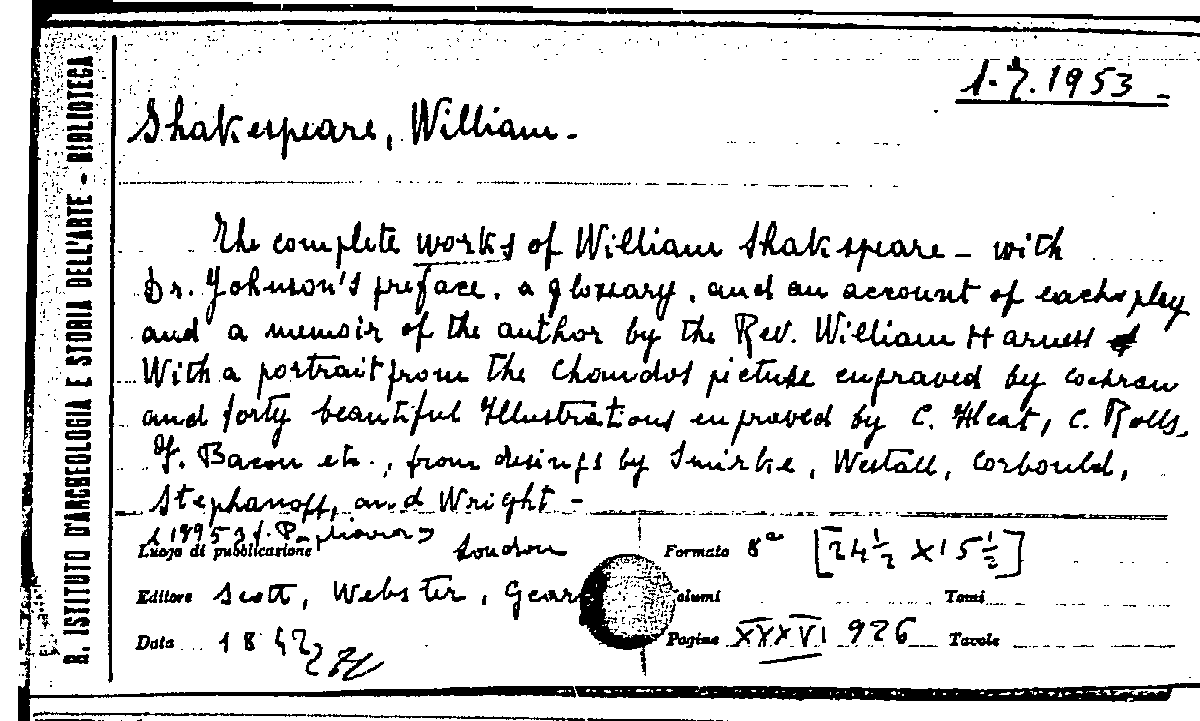 R. ISTITUTO D'ARCHEOLOGIA E STORIA DELL'ARTE - BIBLIOTECA
1.7.1953
Shakespeare, William.
The complete works of William Shakspeare - with
Dr. Johnson's preface, a glossary, and an account of each play
and a memoir of the author by the Rev. William Harness
With a portrait from the Chandos picture engraved by Cochran
and forty beautiful Illustrations engraved by C. Heat, C. Rolls,
F. Bacon etc., from desings by Smirke, Westall, Corbould,
Stephanoff, and Wright -
Luogo di pubblicazione London Formato 8° [24 1/2 X 15 1/2]
Editore Scott, Webster, Gear Volumi Tomi
Data 1842 Pagine XXXVI 926 Tavole